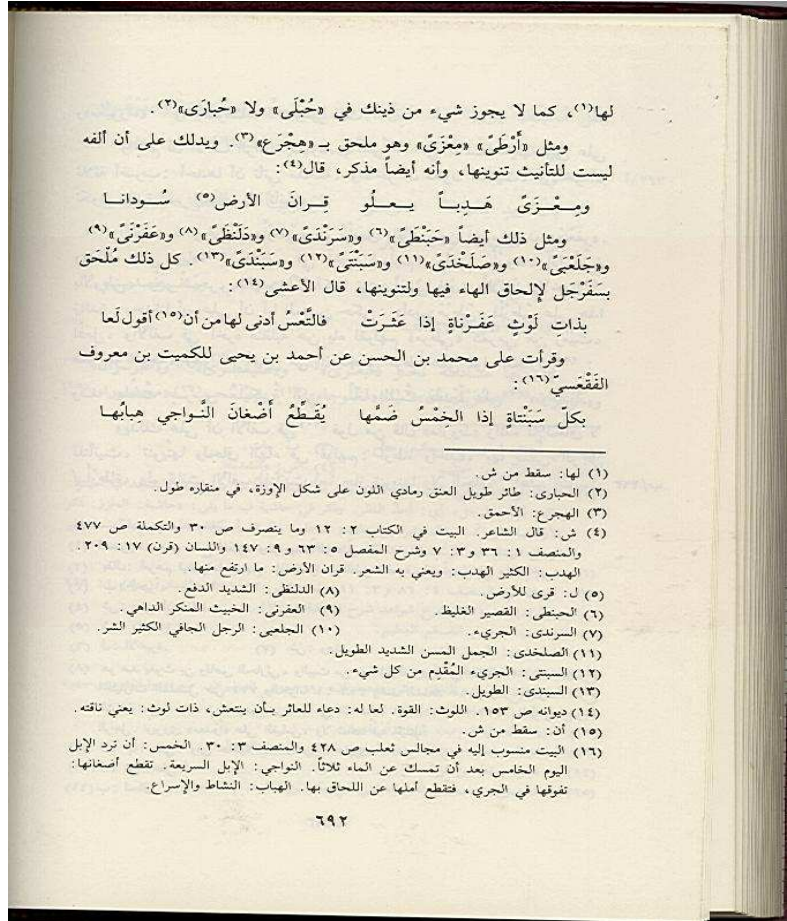 لها(١)، كما لا يجوز شيء من ذينك في «حُبْلَى» ولا «حُبارَى»(٢).
ومثل «أَرْطًى» «مِعْزًى» وهو ملحق بـ «هِجْرَع»(٣). ويدلك على أن ألفه
ليست للتأنيث تنوينها، وأنه أيضاً مذكر، قال(٤):
ومِـعْـزًى هَـدِبـاً يـعـلُـو قِـرانَ الأرض(٥) سُـودانـا
ومثل ذلك أيضاً «حَبَنْطًى»(٦) و«سَرَنْدًى»(٧) و«دَلَنْظًى»(٨) و«عَفَرْنًى»(٩)
و«جَلَعْبًى»(١٠) و«صَلَخْدًى»(١١) و«سَبَنْتًى»(١٢) و«سَبَنْدًى»(١٣). كل ذلك مُلْحَق
بسَفَرْجَل لإلحاق الهاء فيها ولتنوينها، قال الأعشى(١٤):
بذاتِ لَوْثٍ عَفَرْناةٍ إذا عَثَرَتْ فالتَّعْسُ أدنى لها من أن(١٥) أقول لَعا
وقرأت على محمد بن الحسن عن أحمد بن يحيى للكميت بن معروف
الفَقْعَسيّ(١٦):
بكلّ سَبَنْتاةٍ إذا الخِمْسُ ضَمَّها يُقَطِّعُ أَضْغانَ النَّواجي هِبابُها
(١) لها: سقط من ش.
(٢) الحبارى: طائر طويل العنق رمادي اللون على شكل الإوزة، في منقاره طول.
(٣) الهجرع: الأحمق.
(٤) ش: قال الشاعر. البيت في الكتاب ٢: ١٢ وما ينصرف ص ٣٠ والتكملة ص ٤٧٧
والمنصف ١: ٣٦ و٣: ٧ وشرح المفصل ٥: ٦٣ و٩: ١٤٧ واللسان (قرن) ١٧: ٢٠٩.
الهدب: الكثير الهدب: ويعني به الشعر. قران الأرض: ما ارتفع منها.
(٥) ل: قرى للأرض. (٨) الدلنظى: الشديد الدفع.
(٦) الحبنطى: القصير الغليظ. (٩) العفرنى: الخبيث المنكر الداهي.
(٧) السرندى: الجريء. (١٠) الجلعبى: الرجل الجافي الكثير الشر.
(١١) الصلخدى: الجمل المسن الشديد الطويل.
(١٢) السبنتى: الجريء المُقْدِم من كل شيء.
(١٣) السبندى: الطويل.
(١٤) ديوانه ص ١٥٣. اللوث: القوة. لعا له: دعاء للعاثر بأن ينتعش، ذات لوث: يعني ناقته.
(١٥) أن: سقط من ش.
(١٦) البيت منسوب إليه في مجالس ثعلب ص ٤٢٨ والمنصف ٣: ٣٠. الخمس: أن ترد الإبل
اليوم الخامس بعد أن تمسك عن الماء ثلاثاً. النواجي: الإبل السريعة. تقطع أضغانها:
تفوقها في الجري، فتقطع أملها عن اللحاق بها. الهباب: النشاط والإسراع.
٦٩٢